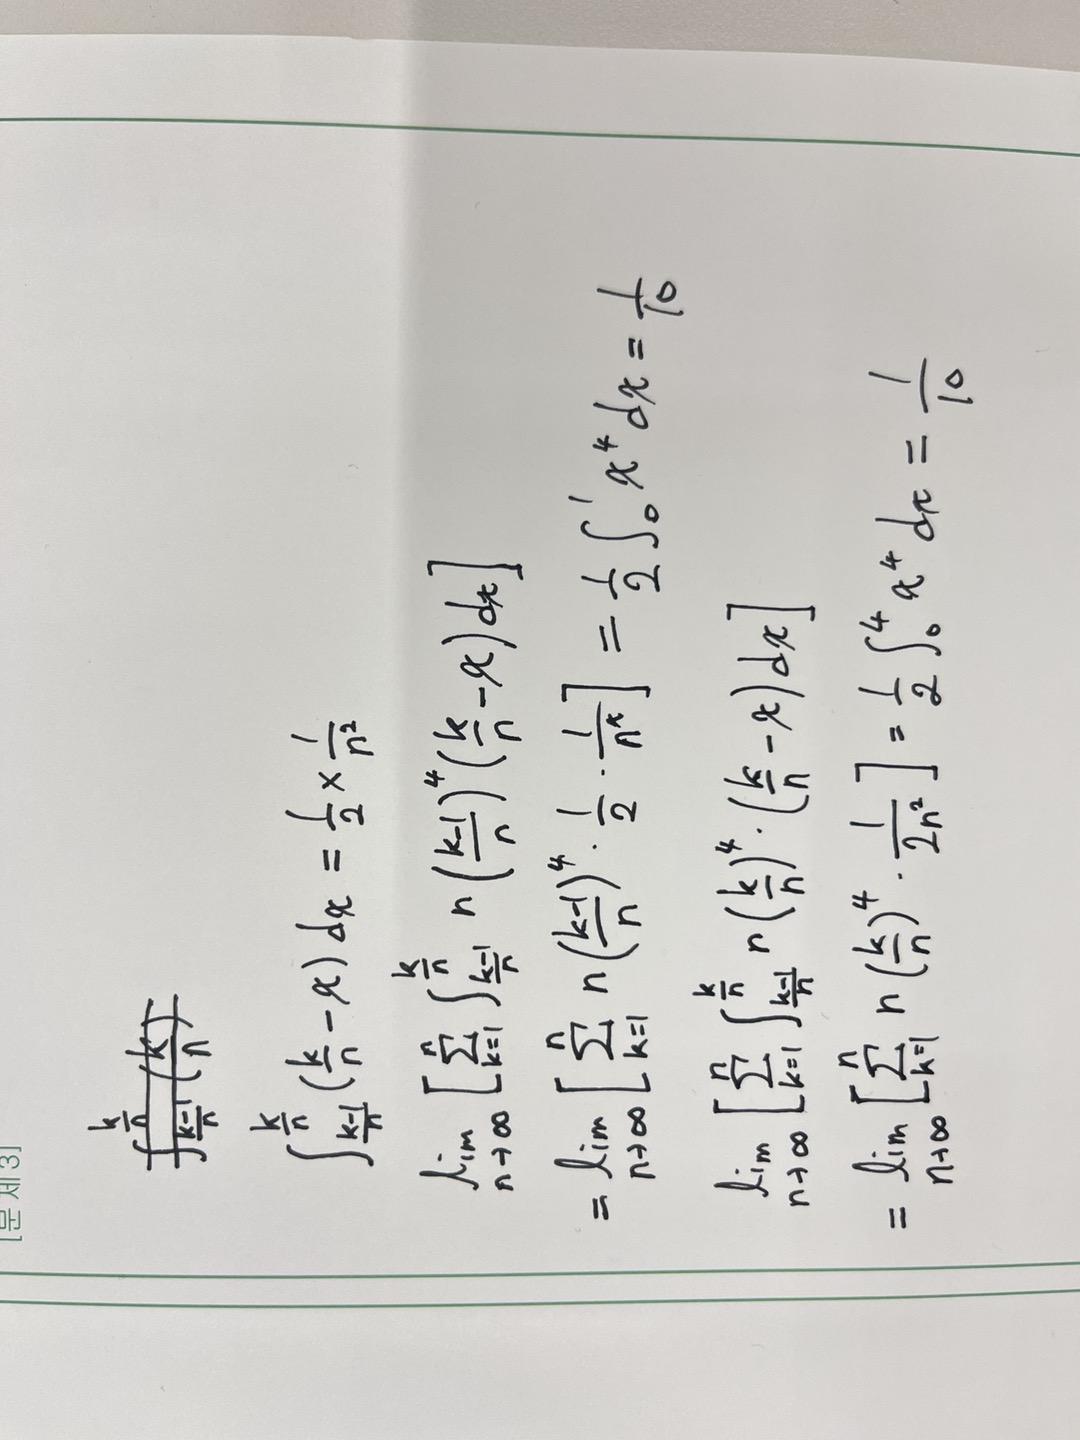 [문제3]
∫_{\frac{k-1}{n}}^{\frac{k}{n}} (\frac{k}{n}
∫_{\frac{k-1}{n}}^{\frac{k}{n}} (\frac{k}{n} - x) dx = \frac{1}{2} × \frac{1}{n²}
lim_{n→∞} [ ∑_{k=1}^{n} ∫_{\frac{k-1}{n}}^{\frac{k}{n}} n (\frac{k-1}{n})⁴ (\frac{k}{n} - x) dx ]
= lim_{n→∞} [ ∑_{k=1}^{n} n (\frac{k-1}{n})⁴ · \frac{1}{2} · \frac{1}{n²} ] = \frac{1}{2} ∫_0^1 x⁴ dx = \frac{1}{10}
lim_{n→∞} [ ∑_{k=1}^{n} ∫_{\frac{k-1}{n}}^{\frac{k}{n}} n (\frac{k}{n})⁴ · (\frac{k}{n} - x) dx ]
= lim_{n→∞} [ ∑_{k=1}^{n} n (\frac{k}{n})⁴ · \frac{1}{2n²} ] = \frac{1}{2} ∫_0^4 x⁴ dx = \frac{1}{10}